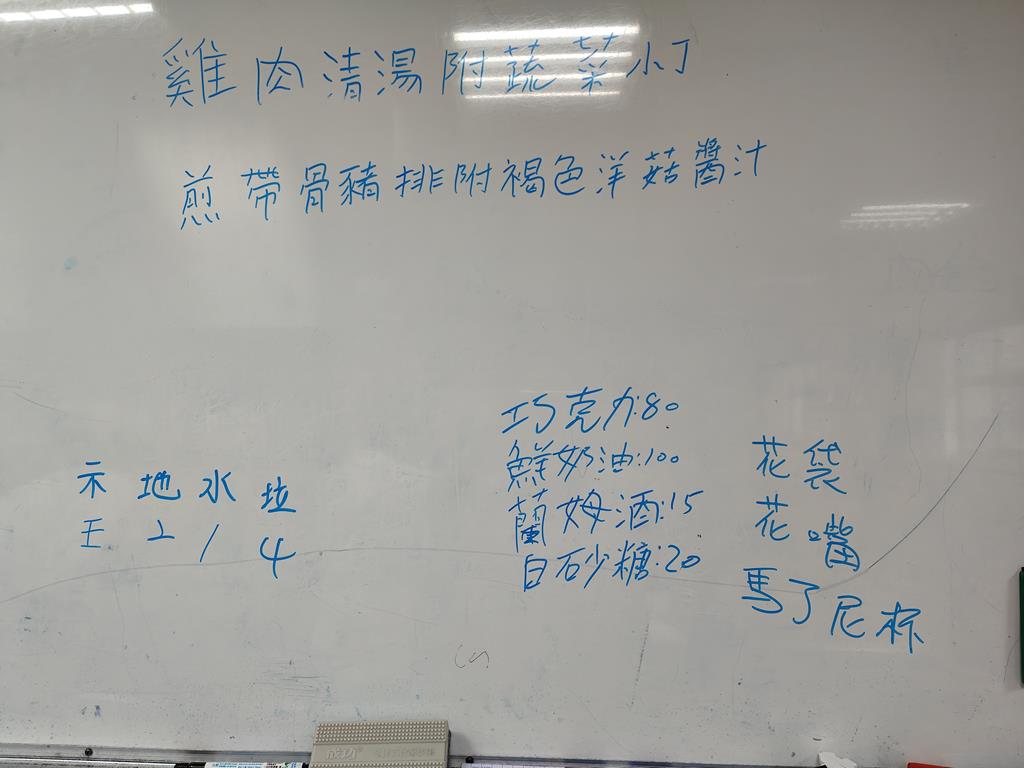 雞肉清湯附蔬菜小丁
煎帶骨豬排附褐色洋菇醬汁
巧克力:80
鮮奶油:100
蘭姆酒:15
白石少糖:20
花袋
花嘴
馬了尼杯
示 地 水 垃
王 2 1 4